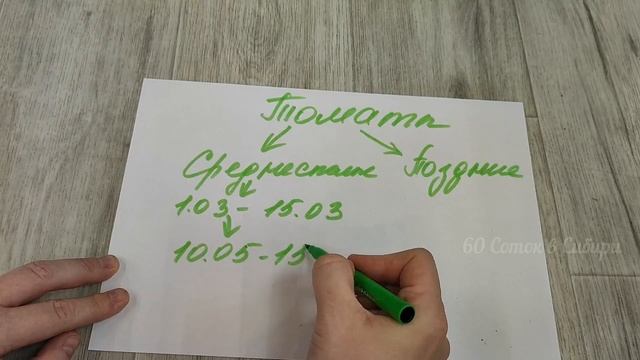 Томаты
Среднеспелые Поздние
1.03 - 15.03
10.05 - 15
60 Соток в Сибири